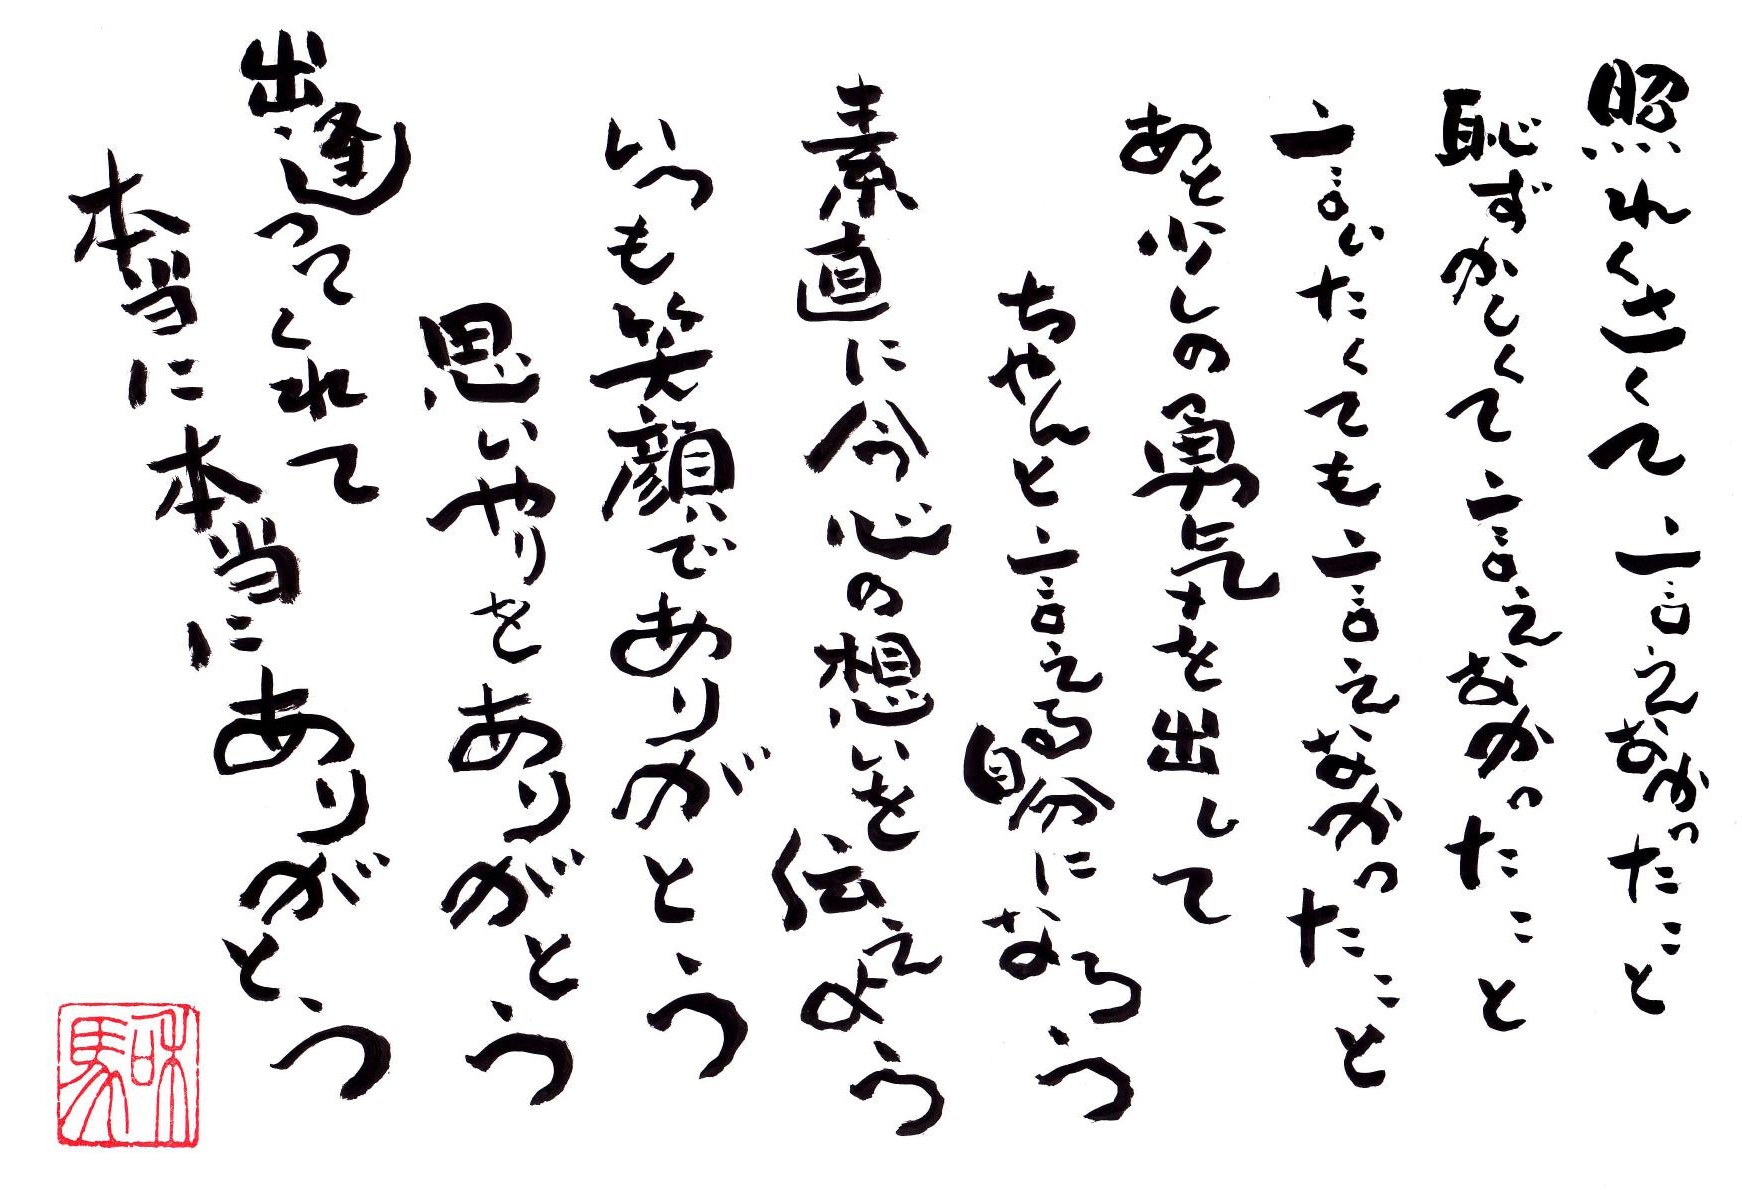 照れくさくて言えなかったこと
恥ずかしくて言えなかったこと
言いたくても言えなかったこと
あと少しの勇気を出して
ちゃんと言える自分になろう
素直に今心の想いを伝えよう
いつも笑顔でありがとう
思いやりをありがとう
出逢ってくれて
本当に本当にありがとう